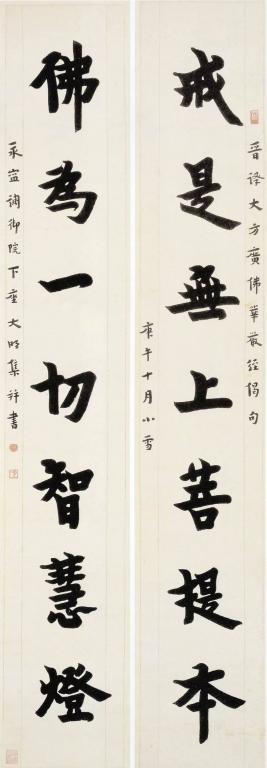 晉譯大方廣佛華嚴經偈句
戒是無上菩提本
庚午十月小雪
佛為一切智慧燈
永寍調御院下座大明集并書